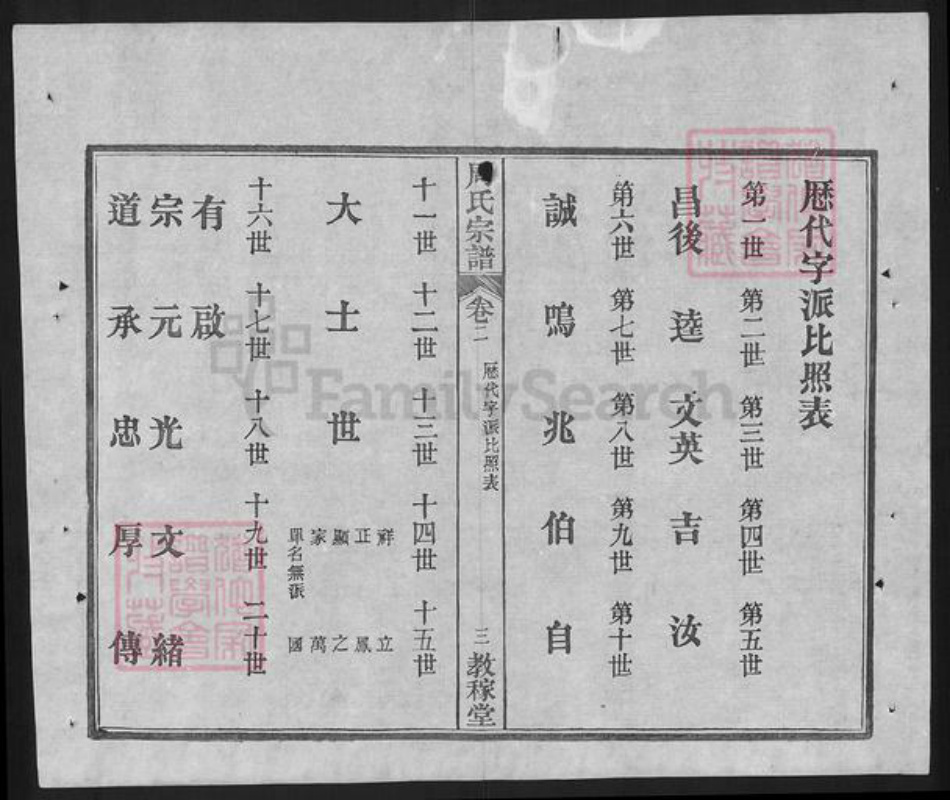 歷代字派比照表
第一世 第二世 第三世 第四世 第五世
昌後 逵 文英 吉 汝
第六世 第七世 第八世 第九世 第十世
誠 鳴 兆 伯 自
周氏宗譜 卷二 歷代字派比照表 三 教稼堂
十一世 十二世 十三世 十四世 十五世
祥 立
正 鳳
顯 之
大 士 世 家 萬
單名無派 國
十六世 十七世 十八世 十九世 二十世
有 啟
宗 元 光 文 緒
道 承 忠 厚 傳
FamilySearch